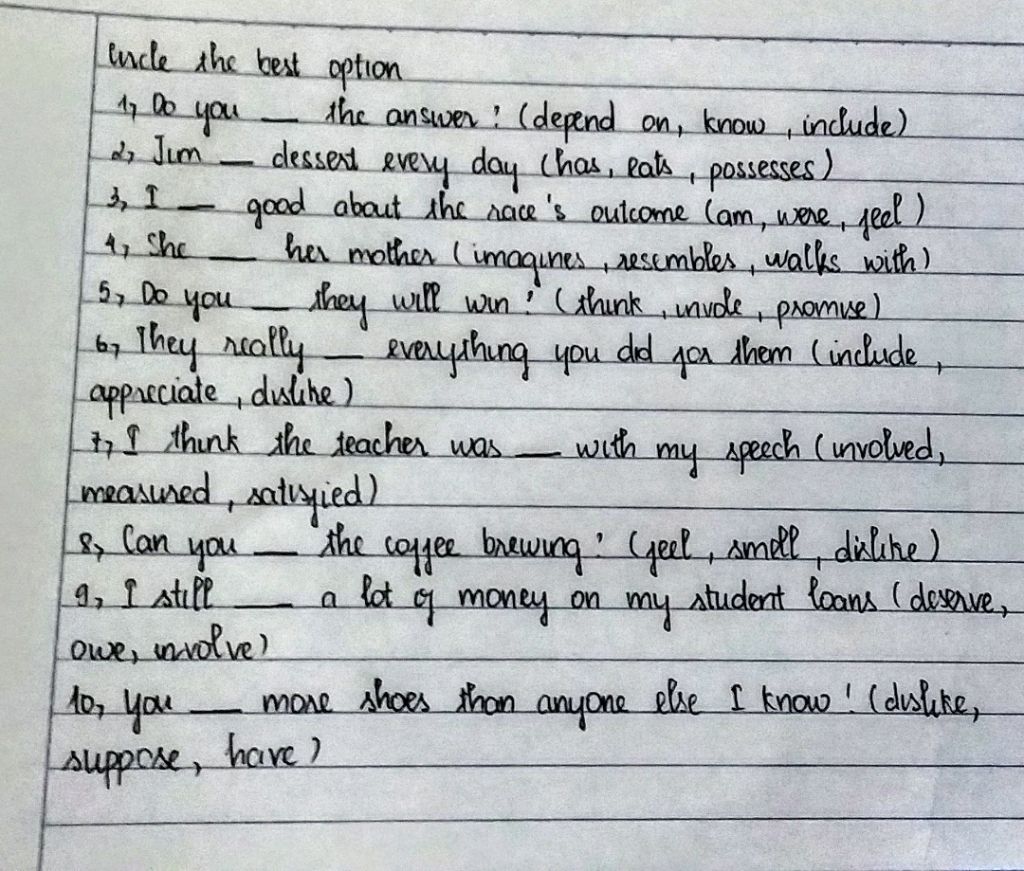 Circle the best option
1, Do you __ the answer? (depend on, know, include)
2, Jim __ dessert every day (has, eats, possesses)
3, I __ good about the race's outcome (am, were, feel)
4, She __ her mother (imagines, resembles, walks with)
5, Do you __ they will win? (think, invole, promise)
6, They really __ everything you did for them (include,
appreciate, dislike)
7, I think the teacher was __ with my speech (involved,
measured, satisfied)
8, Can you __ the coffee brewing? (feel, smell, dislike)
9, I still __ a lot of money on my student loans (deserve,
owe, involve)
10, You __ more shoes than anyone else I know! (dislike,
suppose, have)